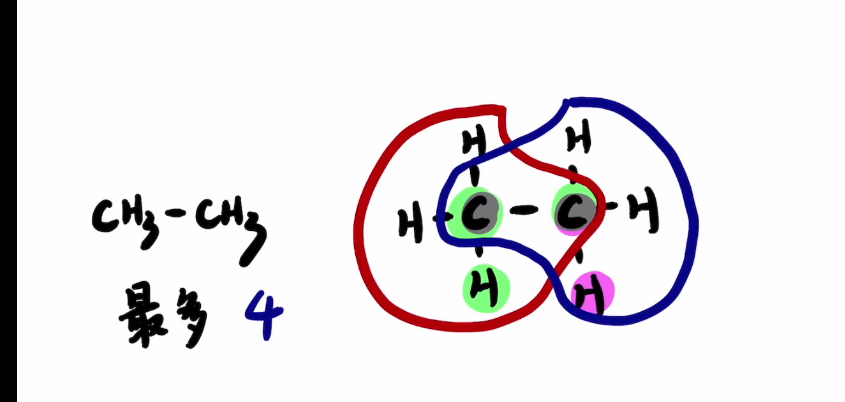 CH₃-CH₃
最多 4
H H
H - C - C - H
H H